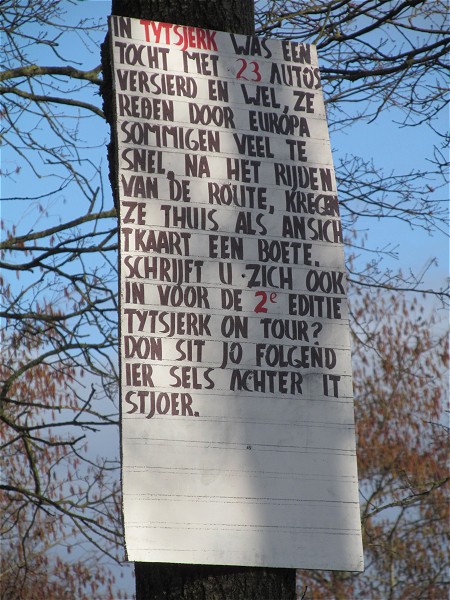 IN TYTSJERK WAS EEN
TOCHT MET 23 AUTO'S
VERSIERD EN WEL, ZE
REDEN DOOR EUROPA
SOMMIGEN VEEL TE
SNEL, NA HET RIJDEN
VAN DE ROUTE, KREGEN
ZE THUIS ALS ANSICH
TKAART EEN BOETE.
SCHRIJFT U ZICH OOK
IN VOOR DE 2e EDITIE
TYTSJERK ON TOUR?
DON SIT JO FOLGEND
IER SELS ACHTER IT
STJOER.